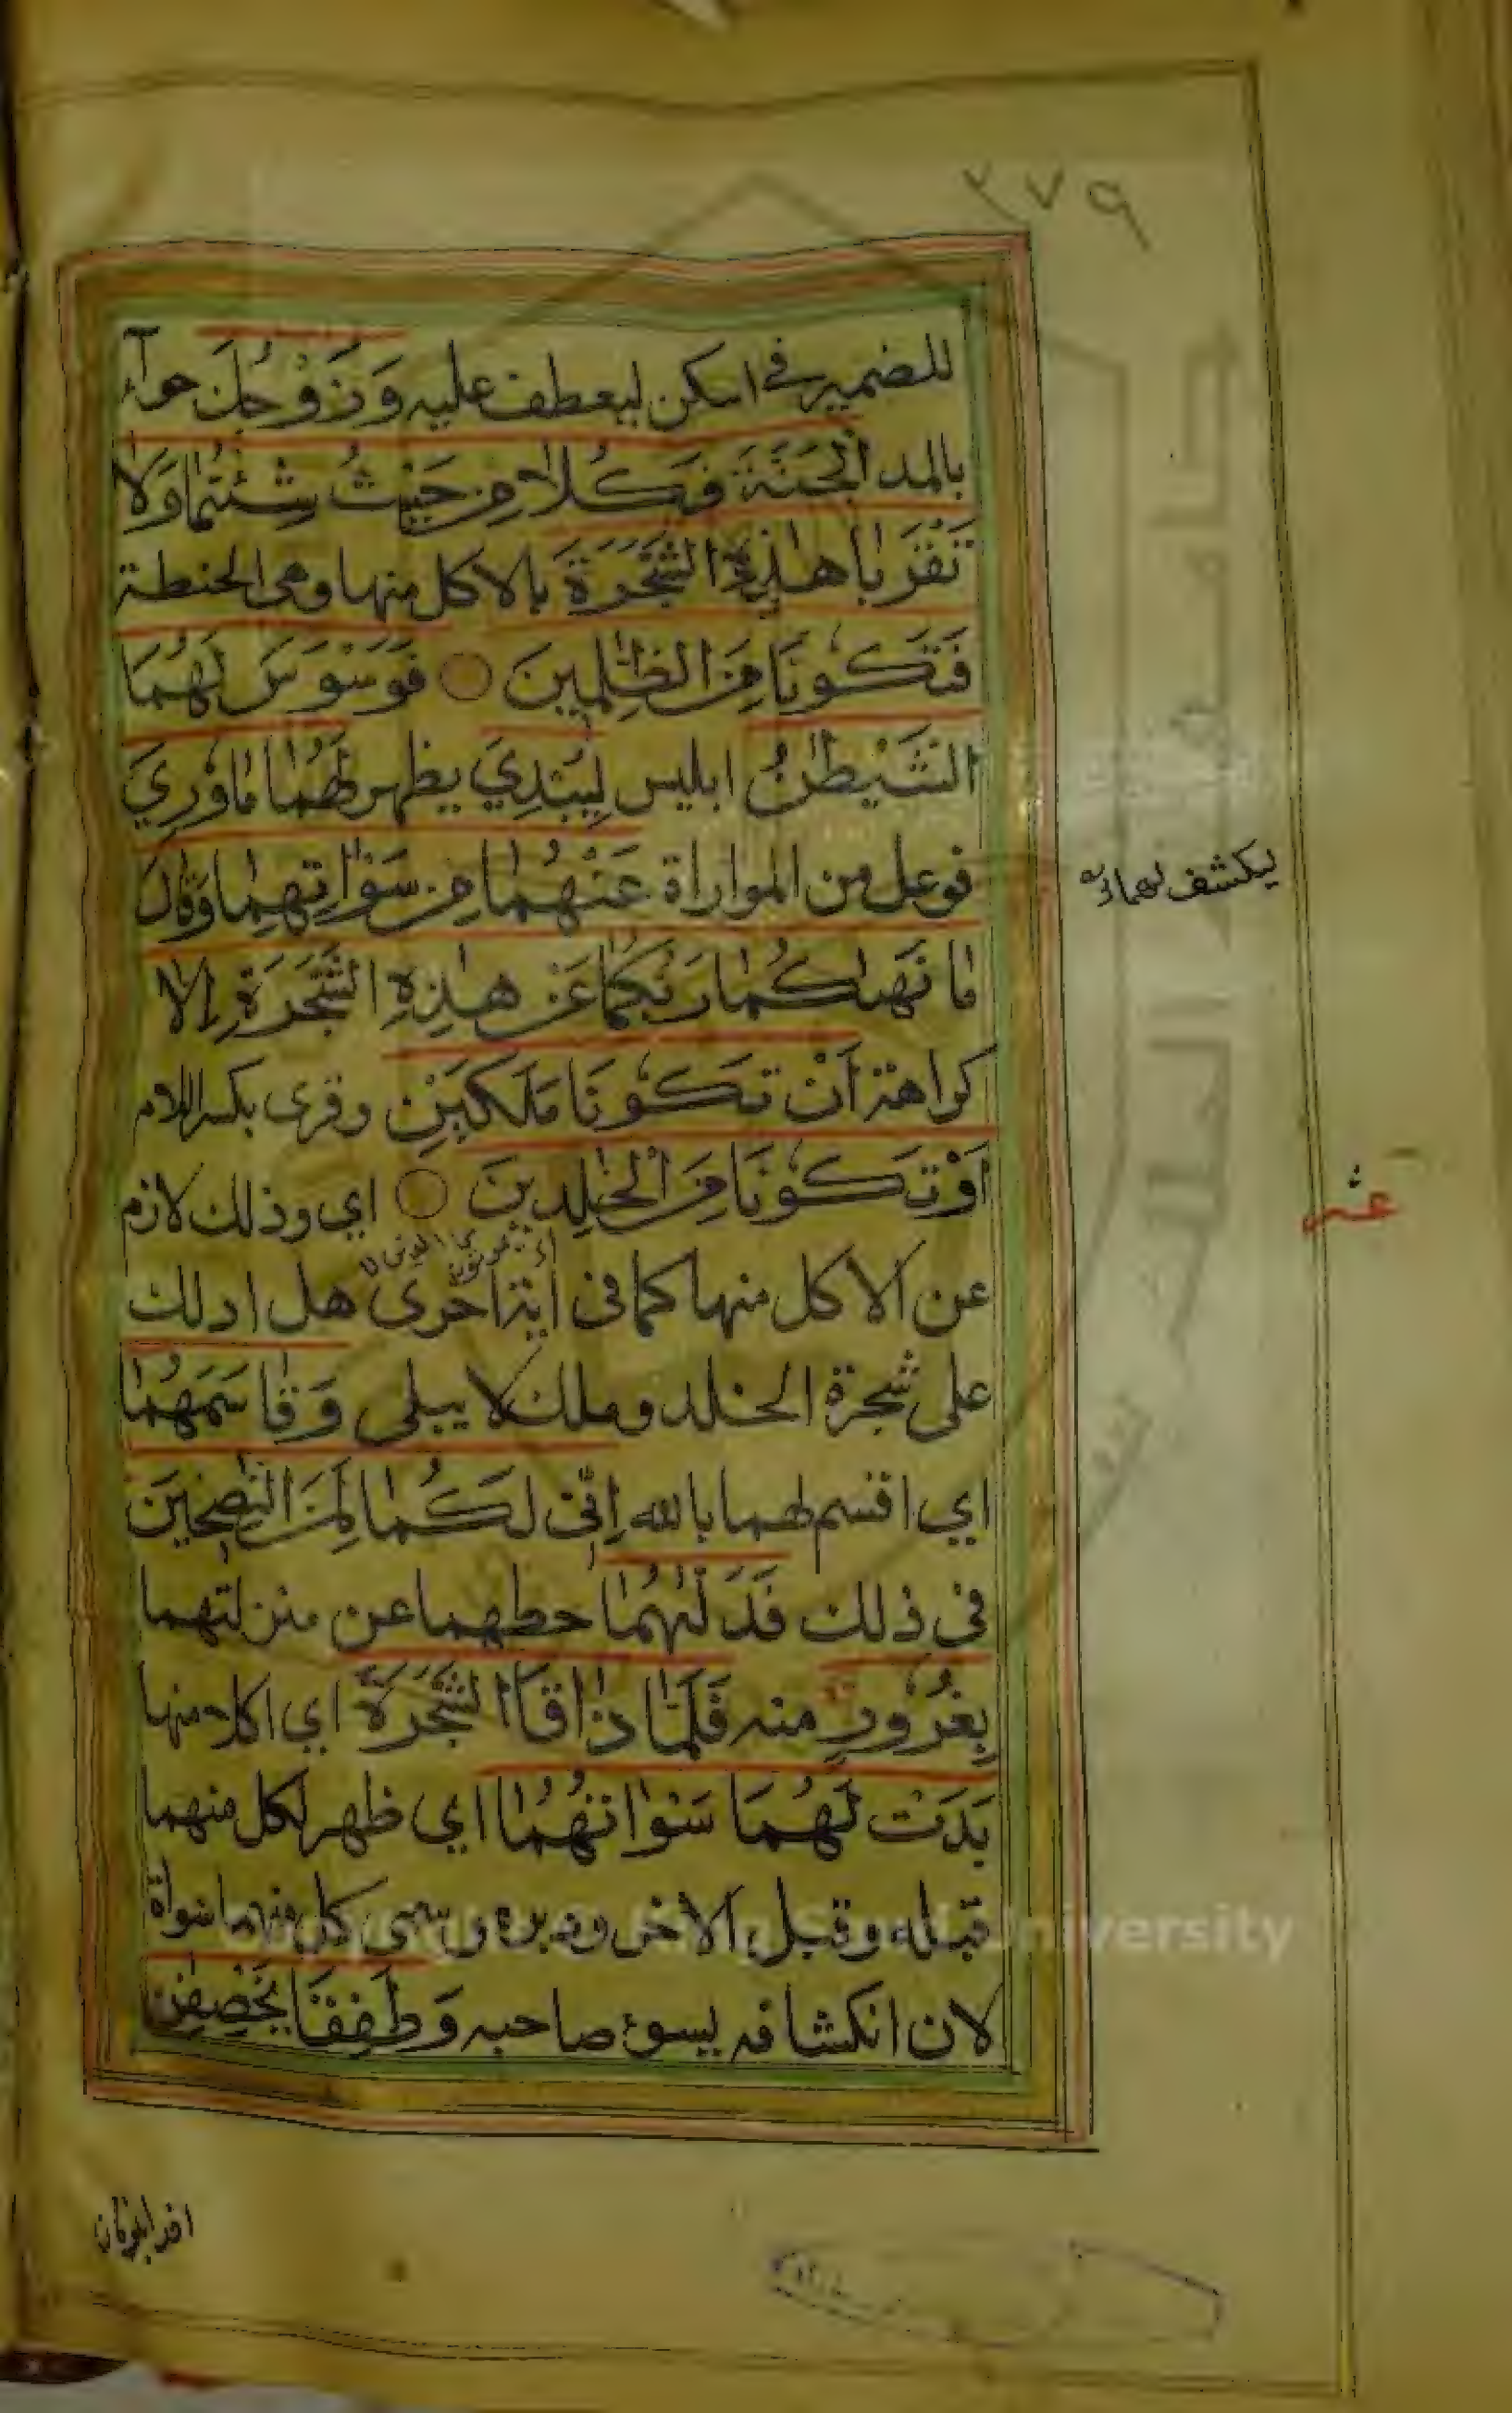 ٣٧٩
للضمير في اسكن ليعطف عليه وَزَوْجُكَ حواء
بالمد الْجَنَّةَ فَكُلَا مِنْ حَيْثُ شِئْتُمَا وَلَا
تَقْرَبَا هٰذِهِ الشَّجَرَةَ بالاكل منها وهي الحنطة
فَتَكُونَا مِنَ الظّٰلِمِينَ فَوَسْوَسَ لَهُمَا
الشَّيْطٰنُ ابليس لِيُبْدِيَ يظهر لَهُمَا مَا وُرِيَ
فوعل من المواراة عَنْهُمَا مِنْ سَوْاٰتِهِمَا وَقَالَ
ليكشف لهما
مَا نَهٰىكُمَا رَبُّكُمَا عَنْ هٰذِهِ الشَّجَرَةِ اِلَّا
كراهة اَنْ تَكُونَا مَلَكَيْنِ وقرى بكسر اللام
اَوْ تَكُونَا مِنَ الْخٰلِدِينَ اي وذلك لازم
عشر
عن الاكل منها كما في اية اخرى هل ادلك
على شجرة الخلد وملك لا يبلى وَقَاسَمَهُمَا
اي اقسم لهما بالله اِنِّى لَكُمَا لَمِنَ النّٰصِحِينَ
في ذلك فَدَلّٰىهُمَا حطهما عن منزلتهما
بِغُرُورٍ منه فَلَمَّا ذَاقَا الشَّجَرَةَ اي اكلا منها
بَدَتْ لَهُمَا سَوْاٰتُهُمَا اي ظهر لكل منهما
قبله وقبل الاخر ودبره وسمى كل منهما سوأة
لان انكشافه يسوء صاحبه وَطَفِقَا يَخْصِفٰنِ
University